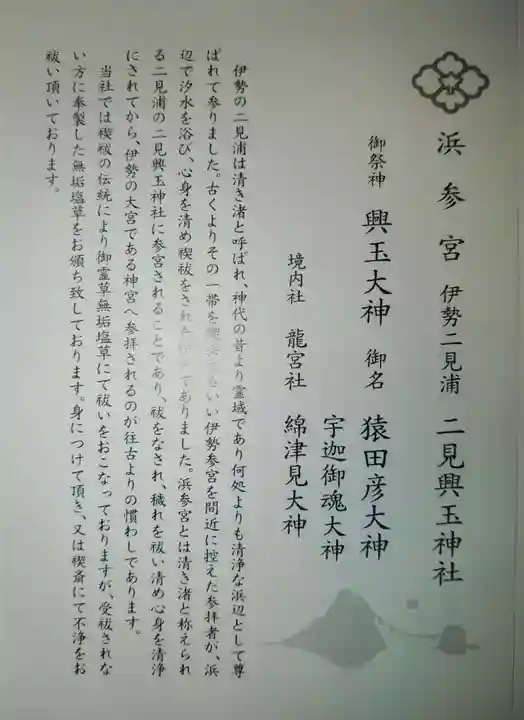 浜参宮 伊勢二見浦 二見興玉神社
御祭神 興玉大神 御名 猿田彦大神
宇迦御魂大神
境内社 龍宮社 綿津見大神
伊勢の二見浦は清き渚と呼ばれ、神代の昔より霊域であり何処よりも清浄な浜辺として尊
ばれて参りました。古くよりその一帯を いい伊勢参宮を間近に控えた参拝者が、浜
辺で汐水を浴び、心身を清め禊祓をされた でありました。浜参宮とは清き渚と称えられ
る二見浦の二見興玉神社に参宮されることであり、祓をなされ、穢れを祓い清め心身を清浄
にされてから、伊勢の大宮である神宮へ参拝されるのが往古よりの慣わしであります。
当社では禊祓の伝統により御霊草無垢塩草にて祓いをおこなっておりますが、受祓されな
い方に奉製した無垢塩草をお頒ち致しております。身につけて頂き、又は禊斎にて不浄をお
祓い頂いております。